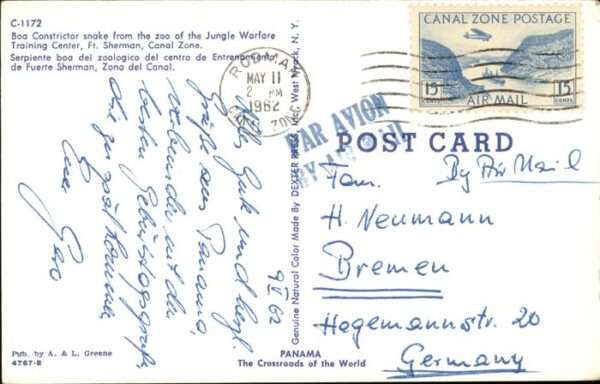 C-1172
Boa Constrictor snake from the zoo of the Jungle Warfare
Training Center, Ft. Sherman, Canal Zone.
Serpiente boa del zoologico del centro de Entrenamiento
de Fuerte Sherman, Zona del Canal.
Alles Gute und herzl.
Grüße aus Panama,
verbunden mit den
besten Geburtstagsgrüßen,
die zu spät kommen.
9 V 62
Pub. by A. & L. Greene
4767-B
Genuine Natural Color Made By DEXTER PRESS, Inc. West Nyack, N. Y.
PANAMA
The Crossroads of the World
RODMAN
MAY 11
2 PM
1962
CANAL ZONE
CANAL ZONE POSTAGE
15 CENTS
AIR MAIL
15 CENTS
PAR AVION
BY AIR MAIL
POST CARD
By Air Mail
Fam.
H. Neumann
Bremen
Hegemannstr. 20
Germany